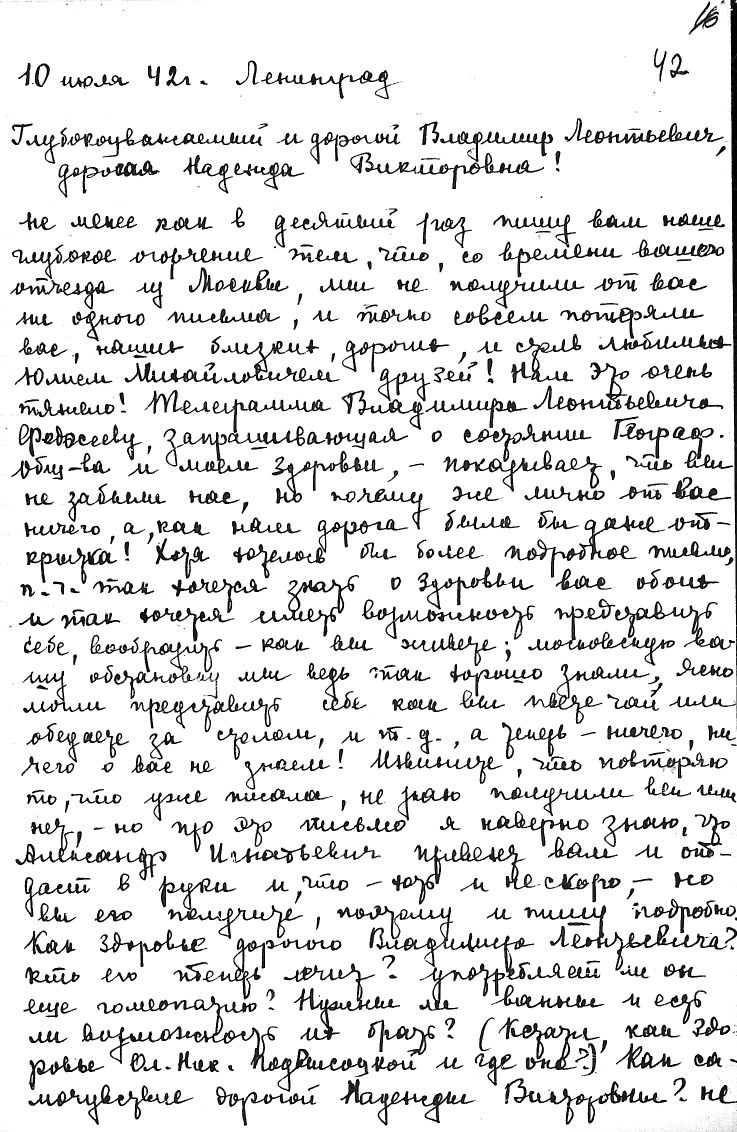 16
42
10 июля 42г. Ленинград
Глубокоуважаемый и дорогой Владимир Леонтьевич,
дорогая Надежда Викторовна!
не менее как в десятый раз пишу вам наше
глубокое огорчение тем, что, со времени вашего
отъезда из Москвы, мы не получили от вас
ни одного письма, и точно совсем потеряли
вас, наших близких, дорогих, и столь любимых
Юлием Михайловичем друзей! Нам это очень
тяжело! Телеграмма Владимира Леонтьевича
запрашивающая о состоянии Географ.
Общ-ва и моем здоровьи, - показывает, что вы
не забыли нас, но почему же лично от вас
ничего, а, как нам дорога была бы даже от-
крытка! Хотя хотелось бы более подробное письмо,
п.ч. так хочется знать о здоровьи вас обоих
и так хочется иметь возможность представить
себе, вообразить - как вы живете; московскую ва-
шу обстановку мы ведь так хорошо знали, ясно
могли представить себе как вы пьете чай или
обедаете за столом, и т.д., а теперь - ничего, ни-
чего о вас не знаем! Извините, что повторяю
то, что уже писала, не знаю получили вы или
нет, - но про это письмо я наверно знаю, что
Александр Игнатьевич привезет вам и от-
даст в руки и, что - хоть и не скоро, - но
вы его получите, поэтому и пишу подробно.
Как здоровье дорогого Владимира Леонтьевича?
кто его теперь лечит? употребляет ли он
еще гомеопатию? Нужны ли ванны и есть
ли возможность их брать? (Кстати, как здо-
ровье Ол. Ник. Подвысоцкой и где она?) Как са-
мочувствие дорогой Надежды Викторовны? не